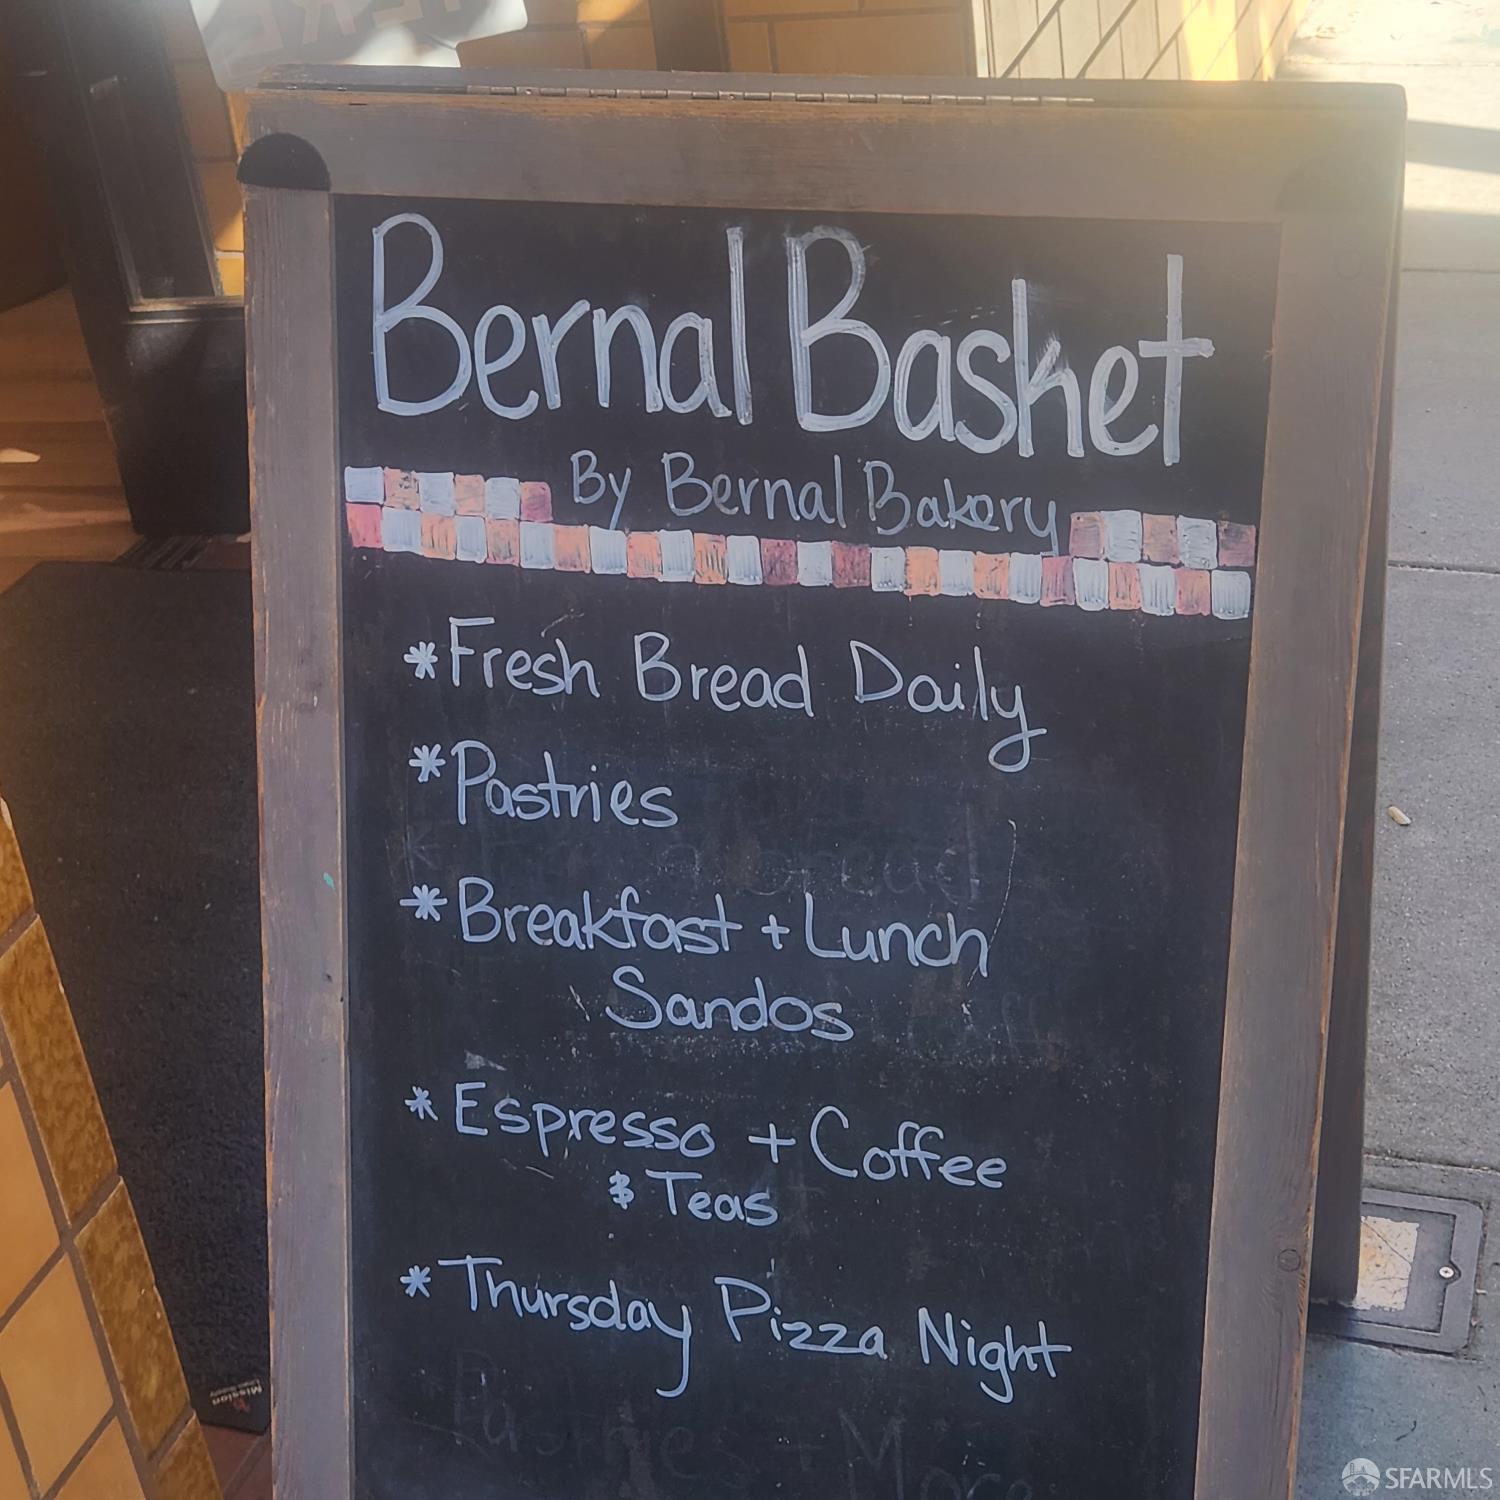 Bernal Basket
By Bernal Bakery
*Fresh Bread Daily
*Pastries
*Breakfast + Lunch
Sandos
*Espresso + Coffee
& Teas
*Thursday Pizza Night
Pastries + More
Mission
SFARMLS